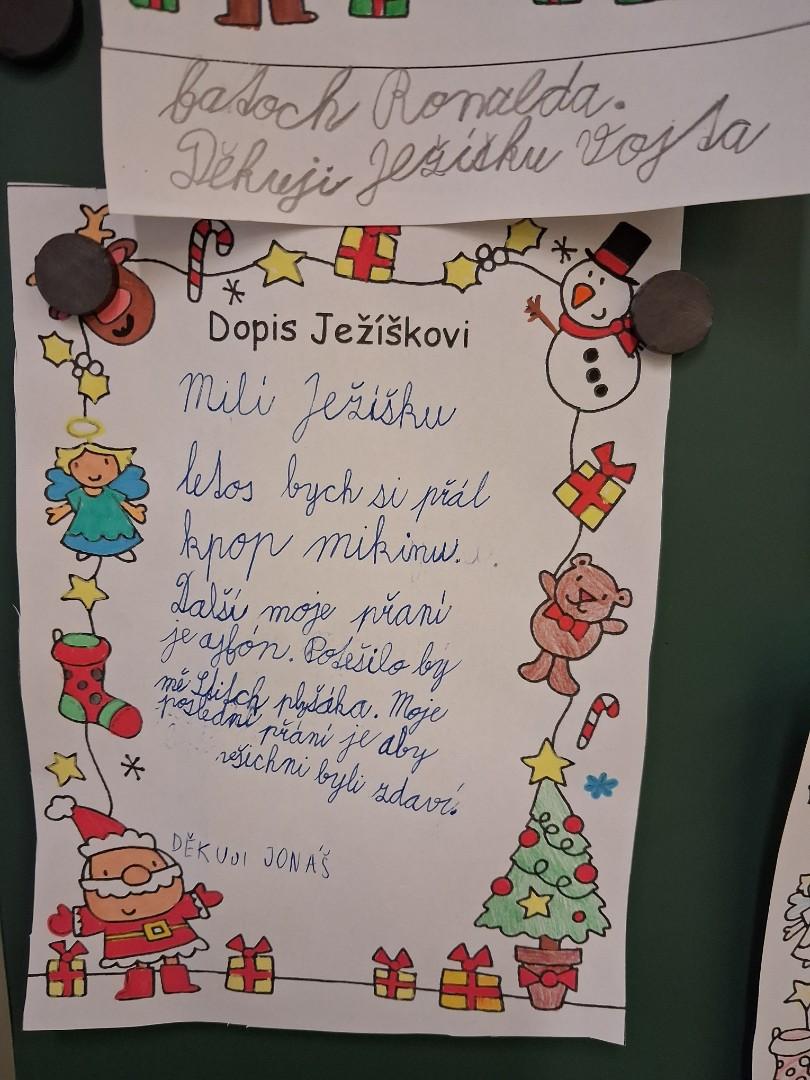 batoch Ronalda.
Děkuji Ježíšku Vojta
Dopis Ježíškovi
Milí Ježíšku
letos bych si přál
kpop mikinu.
Další moje přaní
je ajfón. Potěšilo by
mě Stitch plyšáka. Moje
poslední přání je aby
všichni byli zdaví.
DĚKUJI JONÁŠ